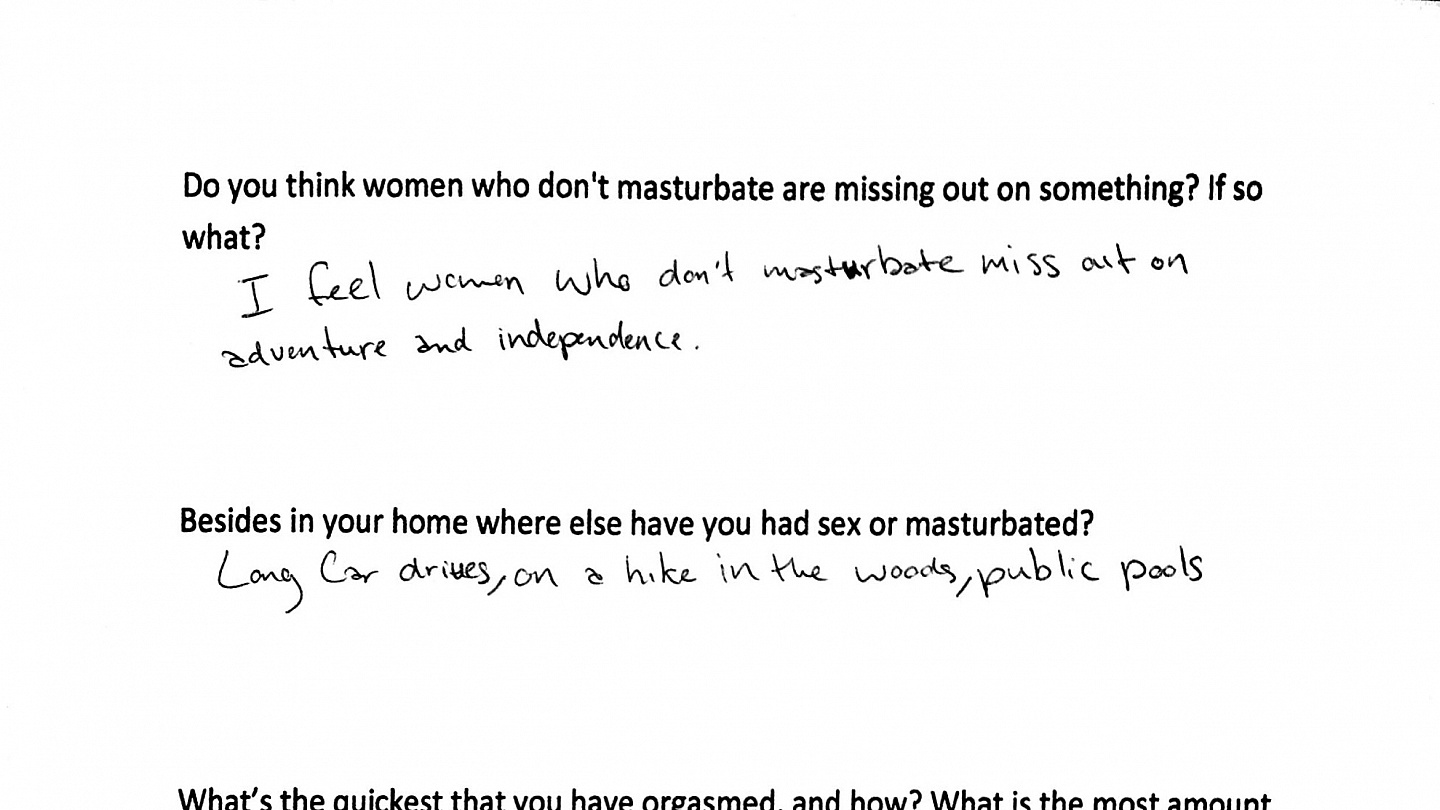 Do you think women who don't masturbate are missing out on something? If so
what?
I feel women who don't masturbate miss out on
adventure and independence.
Besides in your home where else have you had sex or masturbated?
Long Car drives, on a hike in the woods, public pools
What's the quickest that you have orgasmed, and how? What is the most amount